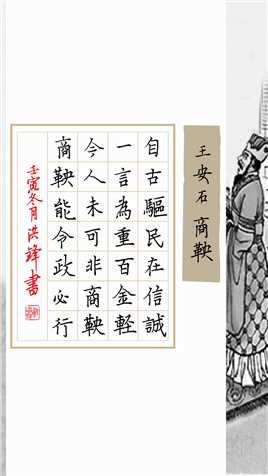 王安石 商鞅
自古驅民在信誠
一言為重百金輕
今人未可非商鞅
商鞅能令政必行
壬寅冬月洪鋒書